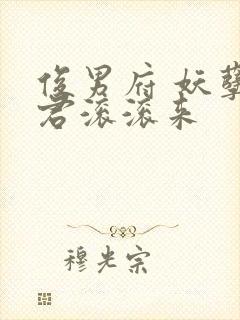 俊男府 妖孽
君滚滚来
穆光宗